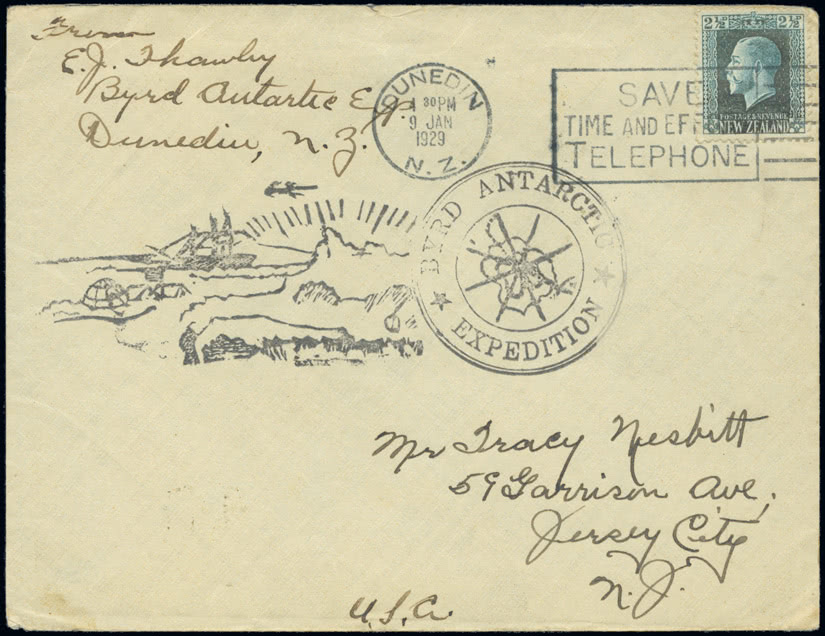 From
E.J. Thawley
Byrd Antartic Exp.
Dunedin, N.Z.
DUNEDIN
4 30PM
9 JAN
1929
N.Z.
SAVE
TIME AND EFF
TELEPHONE
2½ 2½
POSTAGE & REVENUE
NEW ZEALAND
BYRD ANTARCTIC
EXPEDITION
Mr Tracy Nesbitt
59 Garrison Ave,
Jersey City
N.J.
U.S.A.